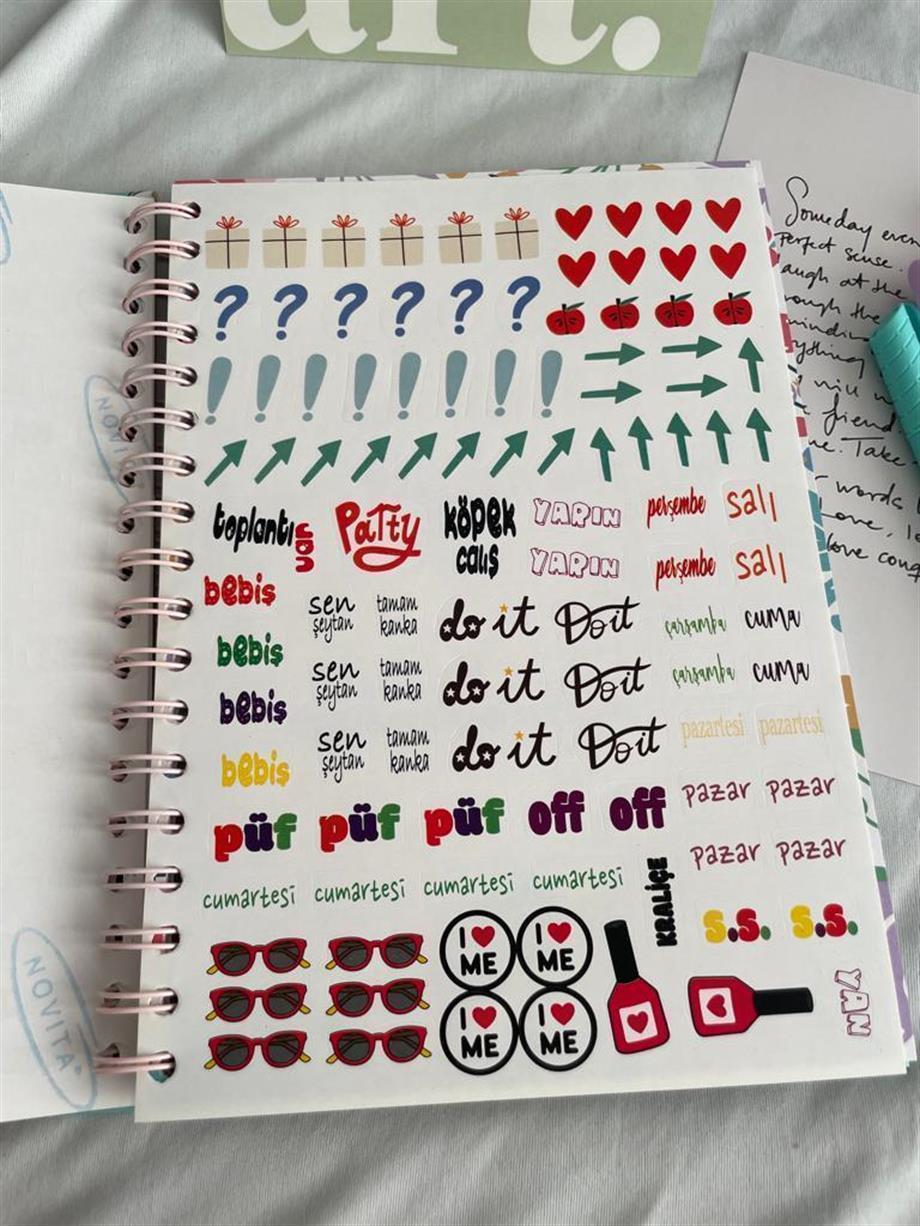 art.
Someday every
Perfect sense.
augh at the
rough the
mindin
rything
will
friend.
me. Take
words
Love,
love
? ? ? ? ? ?
! ! ! ! ! ! ! !
toplantı var Party köpek YARIN perşembe salı
çalış YARIN perşembe salı
bebiş sen tamam do it Do it çarşamba cuma
şeytan kanka
bebiş sen tamam do it Do it çarşamba cuma
şeytan kanka
bebiş
sen tamam do it Do it pazartesi pazartesi
şeytan kanka
bebiş
püf püf püf off off pazar pazar
pazar pazar
cumartesi cumartesi cumartesi cumartesi
KRALİÇE
s.s. s.s.
I ❤ ME I ❤ ME
I ❤ ME I ❤ ME
YAN
NOVI
NOVITA